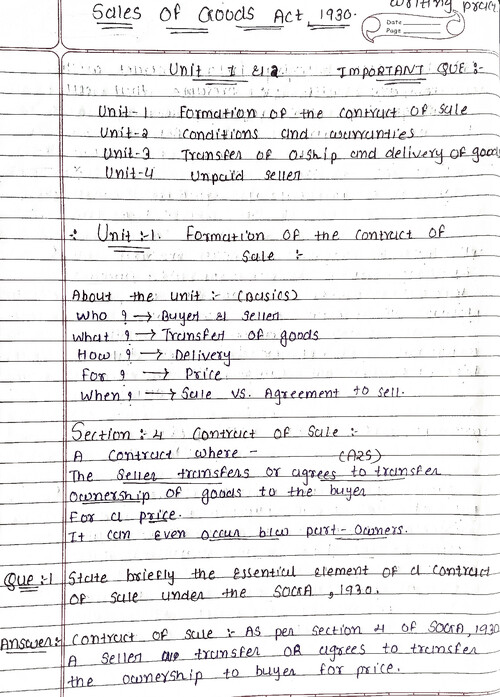 Sales Of Goods Act, 1930.
writing prac
Date
Page
Unit 1 & 2 IMPORTANT QUE :-
Unit-1 Formation of the contract of sale
Unit-2 Conditions and warranties
Unit-3 Transfer of o.ship and delivery of goods
Unit-4 Unpaid seller
: Unit :-1. Formation of the contract of
Sale :-
About the unit :- (Basics)
Who ? → Buyer & seller
What ? → Transfer of goods
How ? → Delivery
For ? → Price
When ? → Sale vs. Agreement to sell.
Section :- 4 Contract of Sale :-
A contract where - (A2S)
The seller transfers or agrees to transfer
ownership of goods to the buyer
For a price.
It can even occur b/w part-owners.
Que :-1 State briefly the essential element of a contract
of sale under the SOGA, 1930.
Answer:- Contract of sale :- As per section 4 of SOGA, 1930
A seller transfer OR agrees to transfer
the ownership to buyer for price.